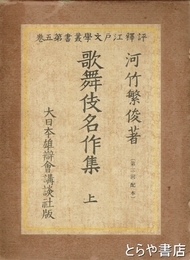 評釋江戸文學叢書第五卷
河竹繁俊著
歌舞伎名作集 上
(第三回配本)
大日本雄辯會講談社版
とらや書店